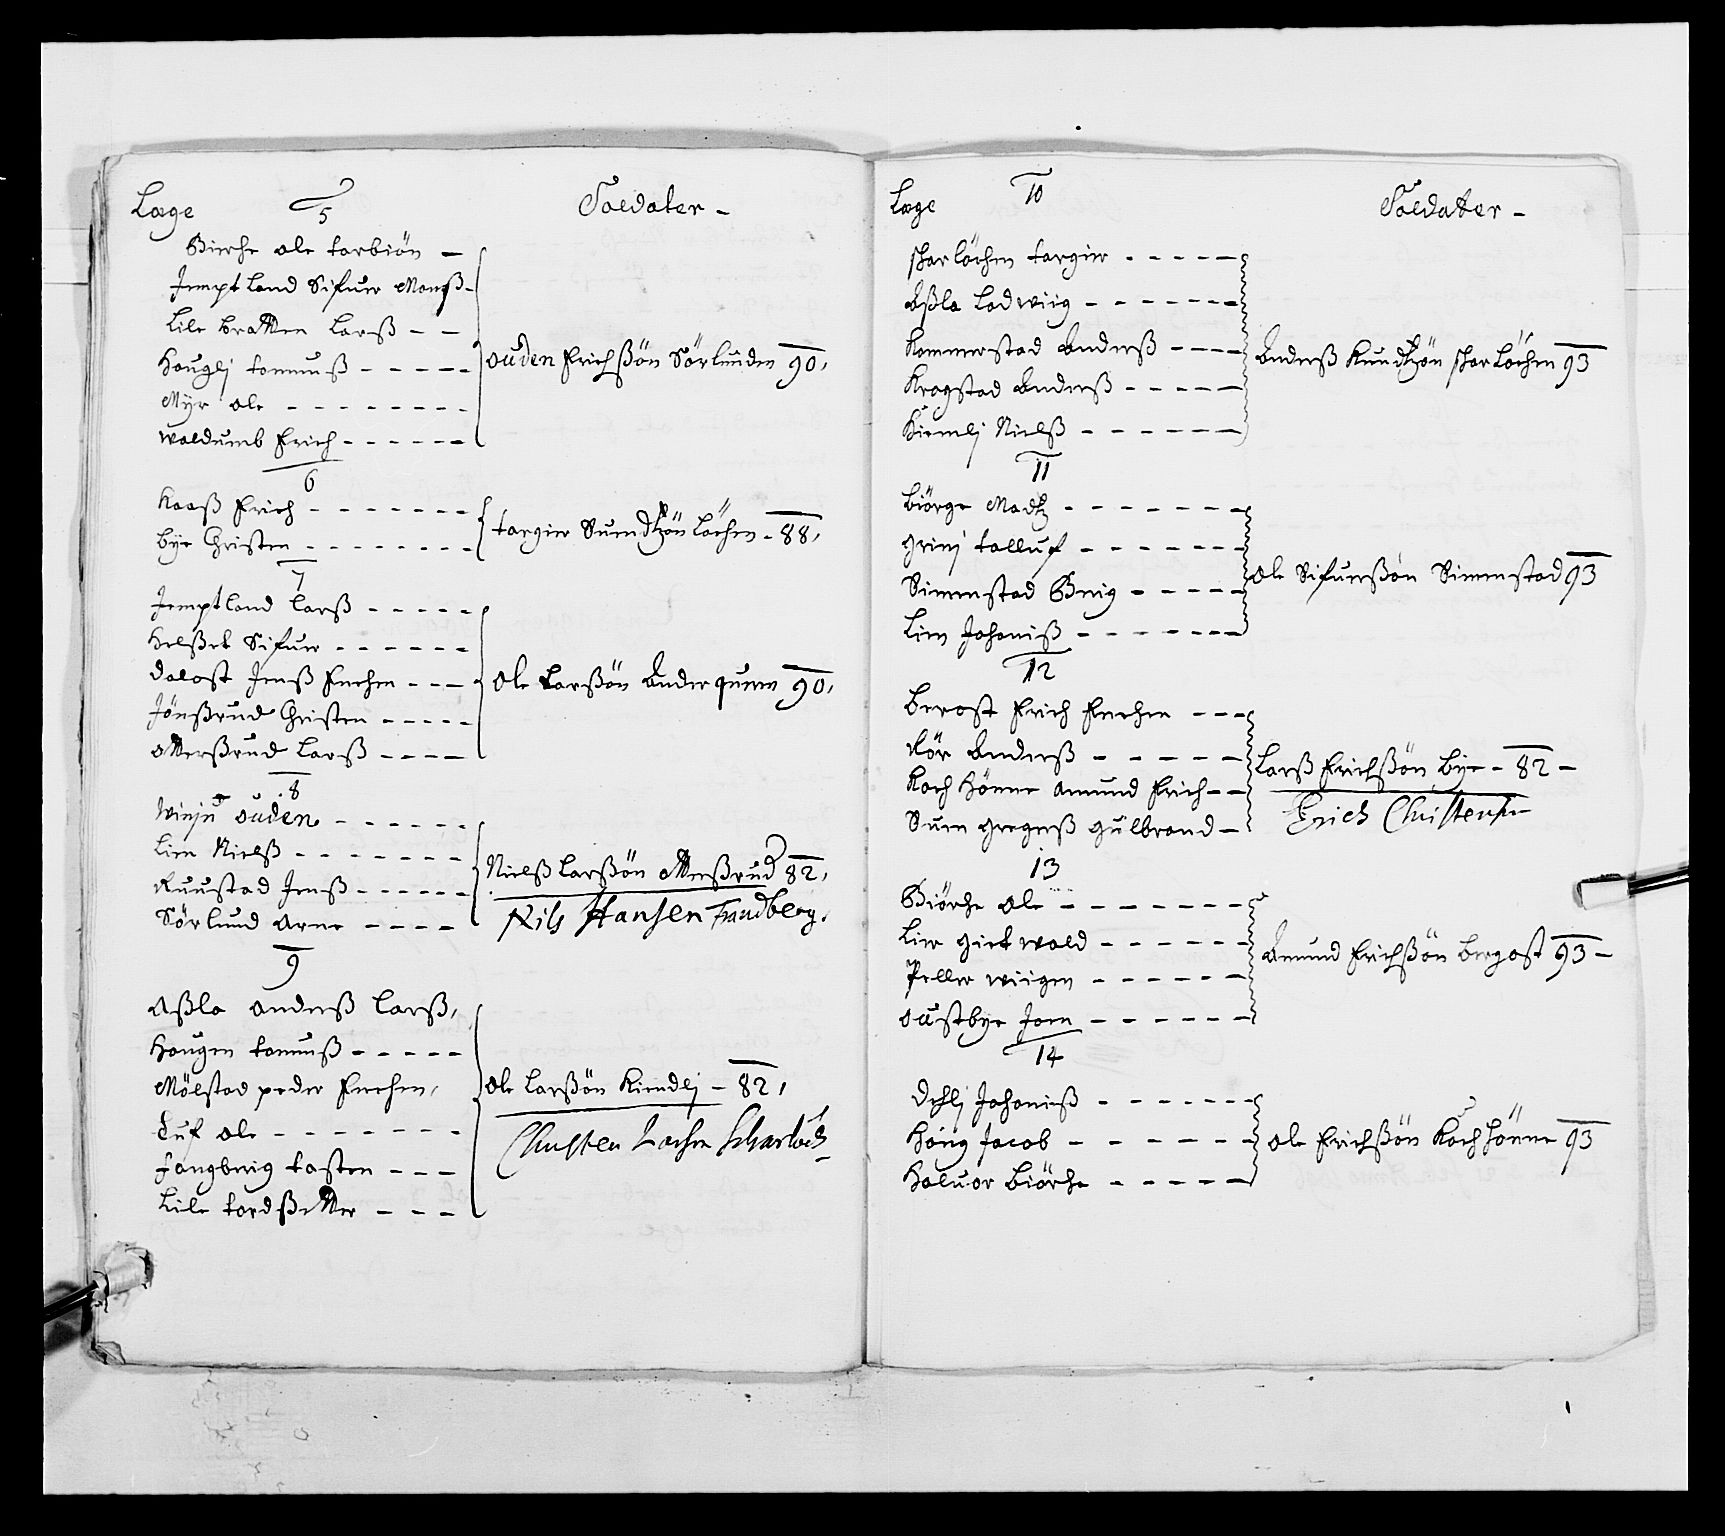 Læge 5 Soldater -
Bierche ole torbiön -
Jemptland Sifuer Monß -
Lile bratten Larß - -
Houglj tommuß - - - - -
Myr ole - - - - - - - -
woldumb Erich - - - - - -
ouden Erichßön Sörlunden 90,
6
Kaaß Erich - - - - - - -
bye Christen - - - - - - - -
torgier Suendtzön Löchen - 88,
7
Jemptland Larß - - - - -
Helßet Sifuer - - - - - -
dalost Jenß Enchen - - -
Jönßrud Christen - - - - -
otterßrud Larß - - - -
Ole Larßön Anderquern 90,
8
Winju ouden - - - - - -
Lien Nielß - - - - - - -
Ruustad Jenß - - - - - -
Sörlund Arne - - - -
Nielß Larßön otterßrud 82,
Nils Hansen Frudberg.
9
Aßla Anderß Larß,
Hougen tommuß - - - - -
Mölstad peder Enchen,
Luf ole - - - - - - -
fangberig tosten - - -
Lile tordßetter - - -
Ole Larßön Kiendlj - 82,
Christen Larsen Scharlöch
Læge 10 Soldater -
skarlöchen torgier - - - - -
Aßla Lodwiig - - - - - -
Kommerstad Anderß - - - -
Kragstad Anderß - - - - -
Kiemlj Nielß - - - - - -
Anderß Knudtzön skarLöchen 93
11
Biörge Madtz - - - - - -
grinj tolluf - - - - - -
Simenstad Breig - - - - -
Lien Johaniß - - - - - - -
ole Sifuerßön Simenstad 93
12
Berost Erich Enchen - - -
Rör Anderß - - - - -
Kochhönne Amund Erich - -
Suen gregerß gulbrand -
Larß Erichßön bye - 82 -
Erich Christensen
13
Biörche ole - - - - - - -
Lier gietwold - - - - -
Peller wiigen - - - - - -
oustbye Joen - - - - - -
Amund Erichßön bergost 93 -
14
Dehlj Johanieß - - - - - -
Höug Jacob - - - - - -
Holuor biörche - - - - -
ole Erichßön Kochhönne 93